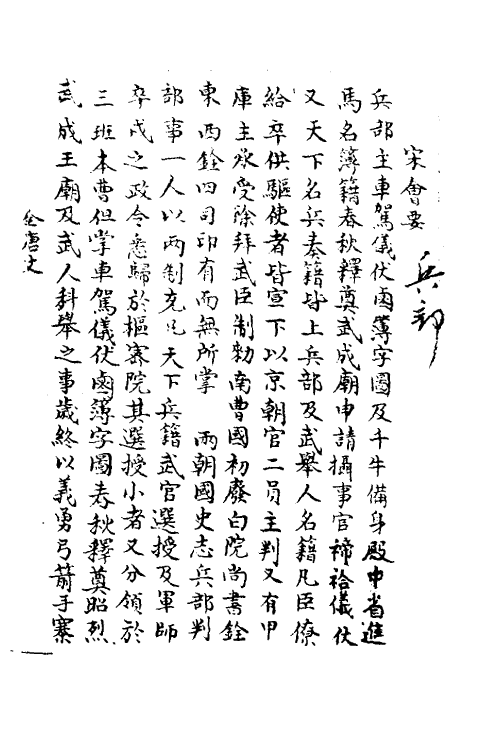 宋會要
兵部
兵部主車駕儀仗鹵簿字圖及千牛備身殿中省進
馬名簿籍春秋釋奠武成廟申請攝事官禘祫儀仗
又天下名兵奏籍皆上兵部及武舉人名籍凡臣僚
給卒供驅使者皆宣下以京朝官二員主判又有甲
庫主承受除拜武臣制勑南曹國初廢白院尚書銓
東西銓四司印有而無所掌 兩朝國史志兵部判
部事一人以兩制充凡天下兵籍武官選授及軍師
卒戍之政令悉歸於樞宻院其選授小者又分領於
三班本曹但掌車駕儀仗鹵簿字圖春秋釋奠昭烈
武成王廟及武人科舉之事歲終以義勇弓箭手寨
全唐文